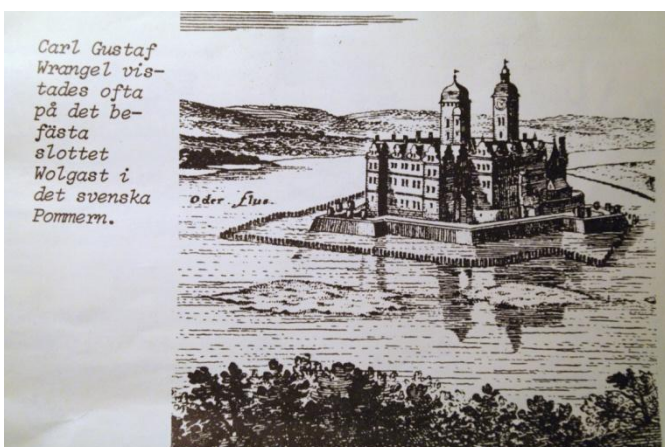 Carl Gustaf
Wrangel vis-
tades ofta
på det be-
fästa
slottet
Wolgast i
det svenska
Pommern.
Oder flus.